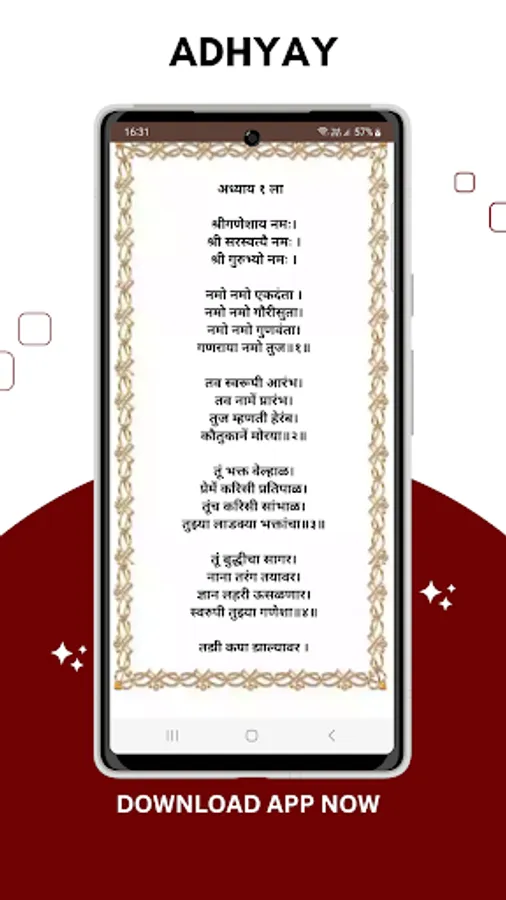 ADHYAY
16:31
57%
अध्याय १ ला
श्रीगणेशाय नमः।
श्री सरस्वत्यै नमः ।
श्री गुरुभ्यो नमः ।
नमो नमो एकदंता ।
नमो नमो गौरीसुता।
नमो नमो गुणवंता।
गणराया नमो तुज॥१॥
तव स्वरूपी आरंभ।
तव नामें प्रारंभ।
तुज म्हणती हेरंब।
कौतुकानें मोरया॥२॥
तूं भक्त वेल्हाळ।
प्रेमें करिसी प्रतिपाळ।
तूंच करिसी सांभाळ।
तुझ्या लाडक्या भक्तांचा॥३॥
तूं बुद्धीचा सागर।
नाना तरंग तयावर।
ज्ञान लहरी ऊसळणार।
स्वरुपी तुझ्या गणेशा॥४॥
तुझी कृपा झाल्यावर ।
DOWNLOAD APP NOW